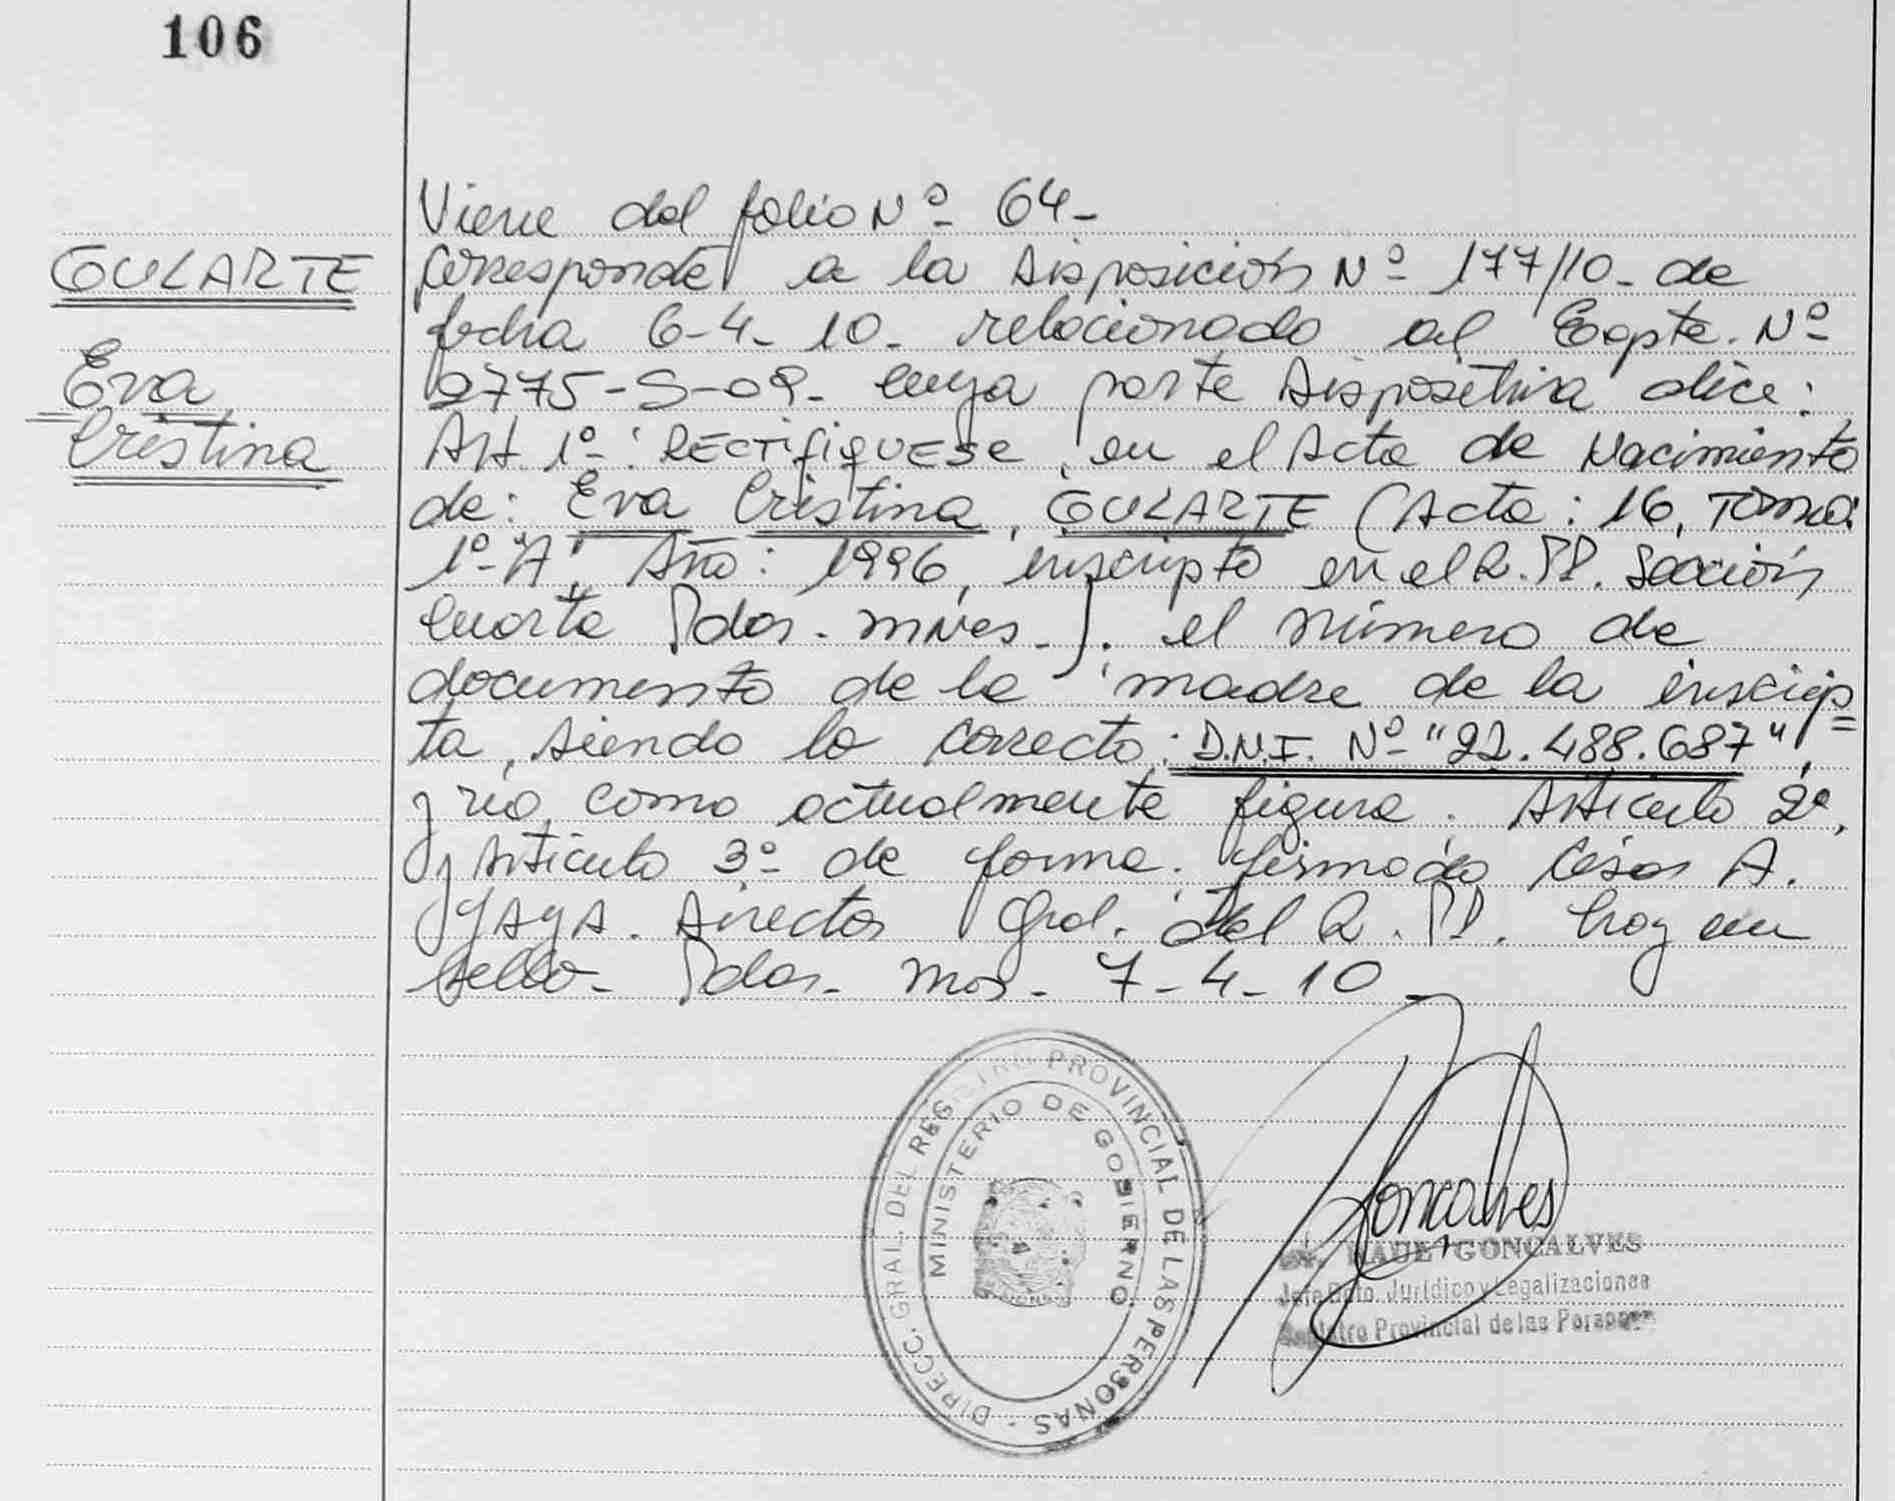 106
Viene del folio Nº 64-
GULARTE
Corresponde a la Disposición Nº 177/10- de
fecha 6-4-10- relacionado al Expte. Nº
Eva
2775-S-09- cuya parte Dispositiva dice:
Cristina
Art. 1º: RECTIFIQUESE, en el Acta de Nacimiento
de: Eva Cristina, GULARTE (Acta: 16, Tomo:
1º "A", Año: 1996, inscripto en el R.PP. Sección
Cuarta Pdas. Mnes.-). el número de
documento de la madre de la inscrip=
ta, siendo lo correcto: D.N.I. Nº "22.488.687",
y no como actualmente figura. Artículo 2º,
y Artículo 3º de forma. firmado César A.
YAYA. Director Gral. del R.PP. hay un
sello- Pdas. Mns- 7-4-10-
DIRECC. GRAL. DEL REGISTRO PROVINCIAL DE LAS PERSONAS -
MINISTERIO DE GOBIERNO
Goncalves
GONCALVES
Jefe Dpto. Jurídico y Legalizaciones
Registro Provincial de las Personas